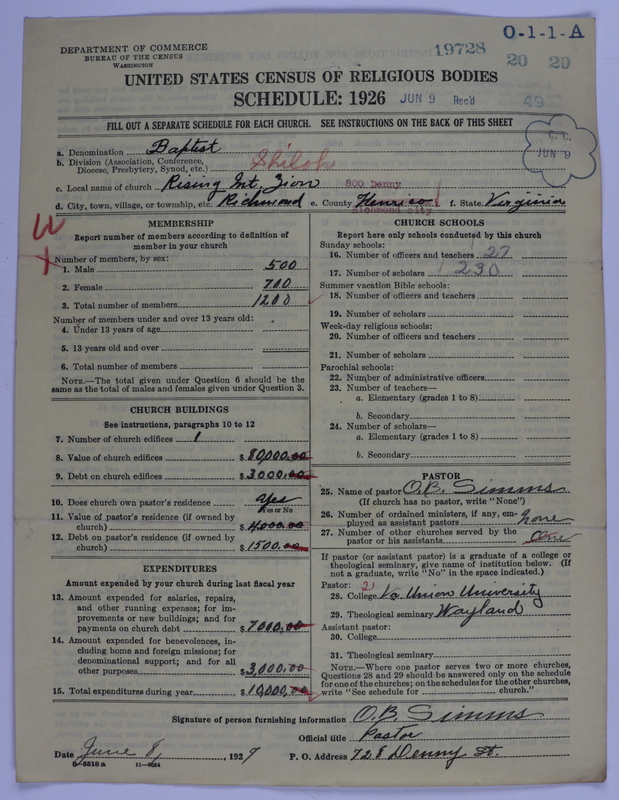 O-1-1-A
DEPARTMENT OF COMMERCE
BUREAU OF THE CENSUS
WASHINGTON
19728
20 29
UNITED STATES CENSUS OF RELIGIOUS BODIES
SCHEDULE: 1926 JUN 9 Rec'd
49
FILL OUT A SEPARATE SCHEDULE FOR EACH CHURCH. SEE INSTRUCTIONS ON THE BACK OF THIS SHEET
JUN 9
a. Denomination Baptist
b. Division (Association, Conference, Diocese, Presbytery, Synod, etc.) Shiloh
c. Local name of church Rising Mt. Zion 800 Denny
d. City, town, village, or township, etc. Richmond e. County Henrico f. State Virginia
Richmond city
MEMBERSHIP
Report number of members according to definition of
member in your church
Number of members, by sex:
1. Male 500
2. Female 700
3. Total number of members 1200
Number of members under and over 13 years old:
4. Under 13 years of age
5. 13 years old and over
6. Total number of members
NOTE.—The total given under Question 6 should be the
same as the total of males and females given under Question 3.
CHURCH BUILDINGS
See instructions, paragraphs 10 to 12
7. Number of church edifices 1
8. Value of church edifices $ 80,000.00
9. Debt on church edifices $ 3000.00
10. Does church own pastor's residence yes
Yes or No
11. Value of pastor's residence (if owned by
church) $ 4000.00
12. Debt on pastor's residence (if owned by
church) $ 1500.00
EXPENDITURES
Amount expended by your church during last fiscal year
13. Amount expended for salaries, repairs,
and other running expenses; for im-
provements or new buildings; and for
payments on church debt $ 7000.00
14. Amount expended for benevolences, in-
cluding home and foreign missions; for
denominational support; and for all
other purposes $ 3,000.00
15. Total expenditures during year $ 10,000.00
CHURCH SCHOOLS
Report here only schools conducted by this church
Sunday schools:
16. Number of officers and teachers 27
17. Number of scholars 230
Summer vacation Bible schools:
18. Number of officers and teachers
19. Number of scholars
Week-day religious schools:
20. Number of officers and teachers
21. Number of scholars
Parochial schools:
22. Number of administrative officers
23. Number of teachers—
a. Elementary (grades 1 to 8)
b. Secondary
24. Number of scholars—
a. Elementary (grades 1 to 8)
b. Secondary
PASTOR
25. Name of pastor O. B. Simms
(If church has no pastor, write "None")
26. Number of ordained ministers, if any, em-
ployed as assistant pastors none
27. Number of other churches served by the
pastor or his assistants One
If pastor (or assistant pastor) is a graduate of a college or
theological seminary, give name of institution below. (If
not a graduate, write "No" in the space indicated.)
Pastor: 2
28. College Va. Union University
29. Theological seminary Wayland
Assistant pastor:
30. College
31. Theological seminary
NOTE.—Where one pastor serves two or more churches,
Questions 28 and 29 should be answered only on the schedule
for one of the churches; on the schedules for the other churches,
write "See schedule for church."
Signature of person furnishing information O. B. Simms
Official title Pastor
Date June 8, 1929 P. O. Address 728 Denny St.
8-5518 a 11-9024